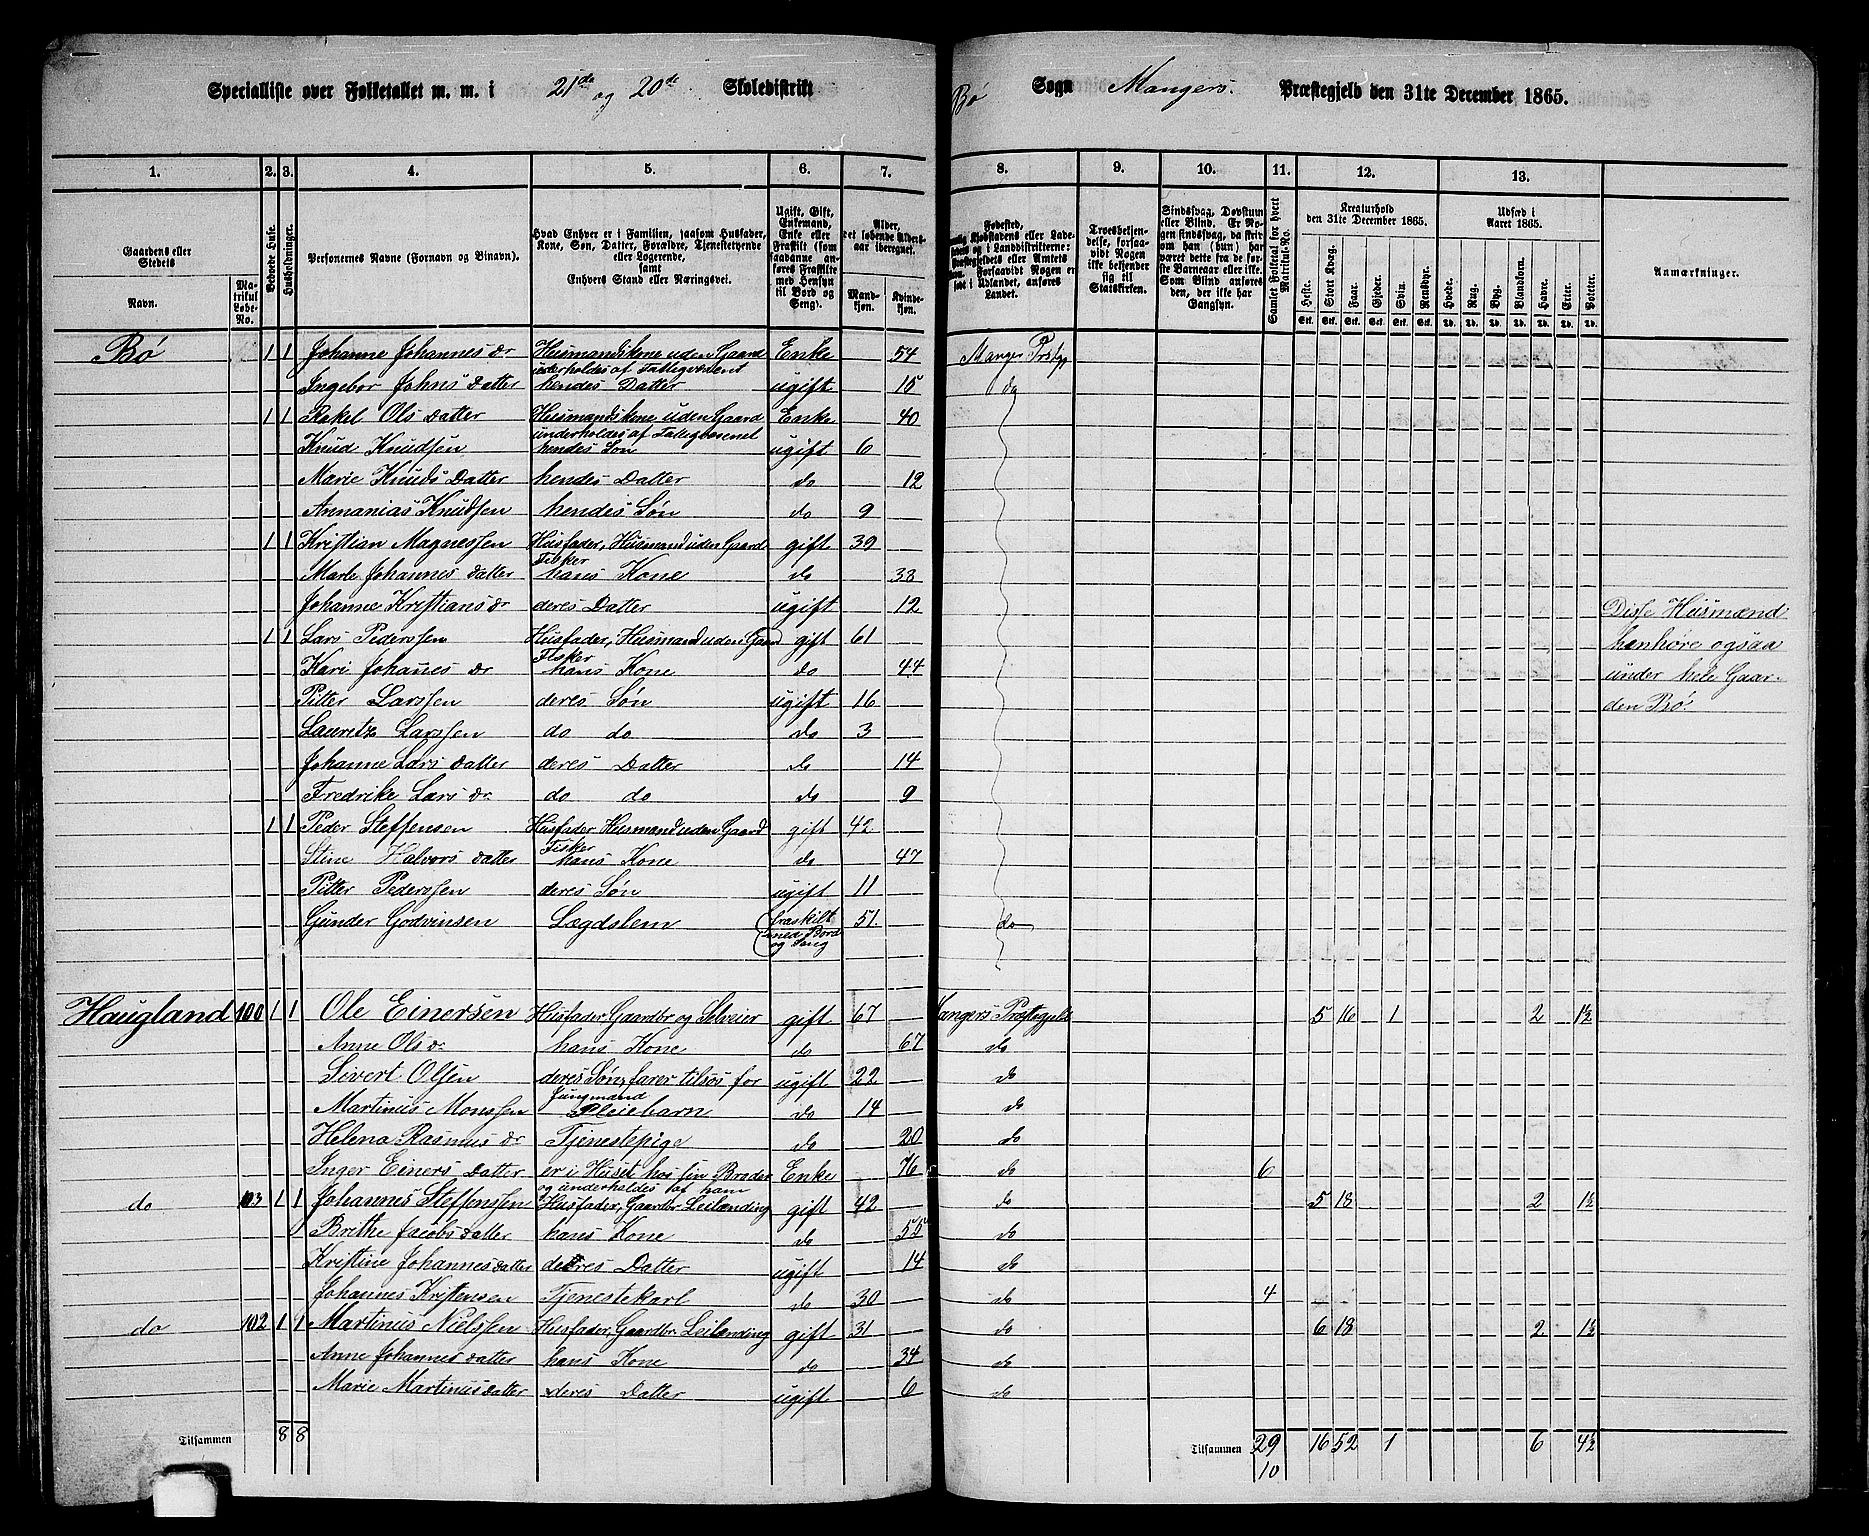 Specialliste over Folketallet m. m. i 21de og 20de Skoledistrikt Bø Sogn Mangers. Præstegjeld den 31te December 1865.
1. 2. 3. 4. 5. 6. 7. 8. 9. 10. 11. 12. 13.
Gaardens eller Stedets Navn. Matrikul Løbe-No. Bebyede Huse. Husholdninger. Personernes Navne (Fornavn og Binavn). Hvad Enhver er i Familien, saasom Husfader, Kone, Søn, Datter, Forældre, Tjenestetyende eller Logerende, samt Enhvers Stand eller Næringsvei. Ugift, Gift, Enkemand, Enke eller Fraskilt (som saadanne anføres Fraskilte med Hensyn til Bord og Seng). Alder, det løbende Aldersaar iberegnet. Mandkjøn. Kvindekjøn.
Troesbekjendelse, forsaavidt Nogen ikke bekjender sig til Statskirken. Sindssvag, Døvstum eller Blind. Samlet Folketal for hvert Matrikul-No. Kreaturhold den 31te December 1865. Heste. Stort Kvæg. Faar. Gjeder. Svin. Rensdyr. Udsæd i Aaret 1865. Hvede. Rug. Byg. Blandkorn. Havre. Erter. Poteter. Anmærkninger.
Bø 1 1 Johanne Johannes Dr Husmandskone uden Gaard underholdes af Fattigvæsenet Enke 54 Manger Prstgj
Ingebor Johns Datter hendes Datter ugift 15 do
1 1 Rakel Ols Datter Husmandskone uden Gaard underholdes af Fattigvæsenet Enke 40
Knud Knudsen hendes Søn ugift 6
Marie Knuds Datter hendes Datter do 12
Annanias Knudsen hendes Søn do 9
1 1 Kristian Magnessen Husfader, Husmand uden Gaard Fisker gift 39
Marte Johannes Datter hans Kone do 38
Johanne Kristians Dr deres Datter ugift 12 Disse Husmænd
1 1 Lars Pederssen Husfader, Husmand uden Gaard Fisker gift 61 henhøre ogsaa
Kari Johanes Dr hans Kone do 44 under hele Gaar-
Pitter Larssen deres Søn ugift 16 den Bø.
Lauritz Larssen do do do 3
Johanne Lars Datter deres Datter do 14
Fredrike Lars Dr do do do 9
1 1 Peder Steffensen Husfader Husmand uden Gaard Fisker gift 42
Stine Halvors Datter hans Kone do 47
Pitter Pederssen deres Søn ugift 11
Gunder Godvinsen Lægdslem fraskilt med Bord og Seng 51. do
Haugland 100 1 1 Ole Einersen Husfader, Gaardbr og Selveier gift 67 Mangers Præstegjeld 5 16 1 2 1½
Anne Ols Dr hans Kone do 67 do
Sivert Olsen deres Søn, farer tilsøs for Jungmand ugift 22 do
Martinus Monssen Pleiebarn do 14 do
Helena Rasmus Dr Tjenestepige do 20 do
Inger Einers Datter er i Huset hos sin Broder og underholdes af ham Enke 76 do 6
do 103 1 1 Johannes Steffenssen Husfader, Gaardbr Leilænding gift 42 do 5 18 2 1½
Brithe Jacobs Datter hans Kone do 55 do
Kristine Johannes Datter deres Datter ugift 14 do
Johannes Kristensen Tjenestekarl do 30 do 4
do 102 1 1 Martinus Nielssen Husfader, Gaardbr Leilænding gift 31 do 6 18 2 1½
Anne Johannes Datter hans Kone do 34 do
Marie Martinus Datter deres Datter ugift 6 do
Tilsammen 8 8 Tilsammen 29 16 52 1 6 4½
10